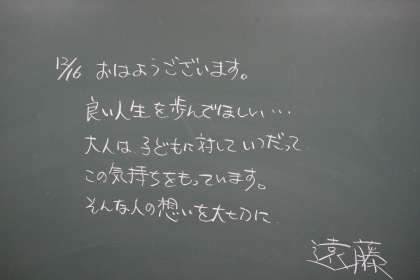 12/16 おはようございます。
良い人生を歩んでほしい…
大人は子どもに対していつだって
この気持ちをもっています。
そんな人の想いを大切に
遠藤